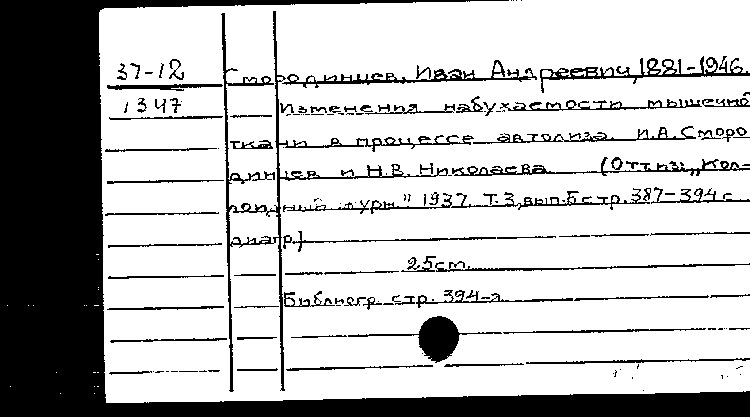 37-12
1347
Смородинцев, Иван Андреевич, 1881-1946.
Изменения набухаемости мышечной
ткани в процессе автолиза. И.А. Сморо
динцев и Н.В. Николаева. (Отт. из: „Кол-
лоидный журн." 1937. Т.3, вып. 5 стр. 387-394 с
диагр.)
25 cm.
Библиогр. стр. 394-я